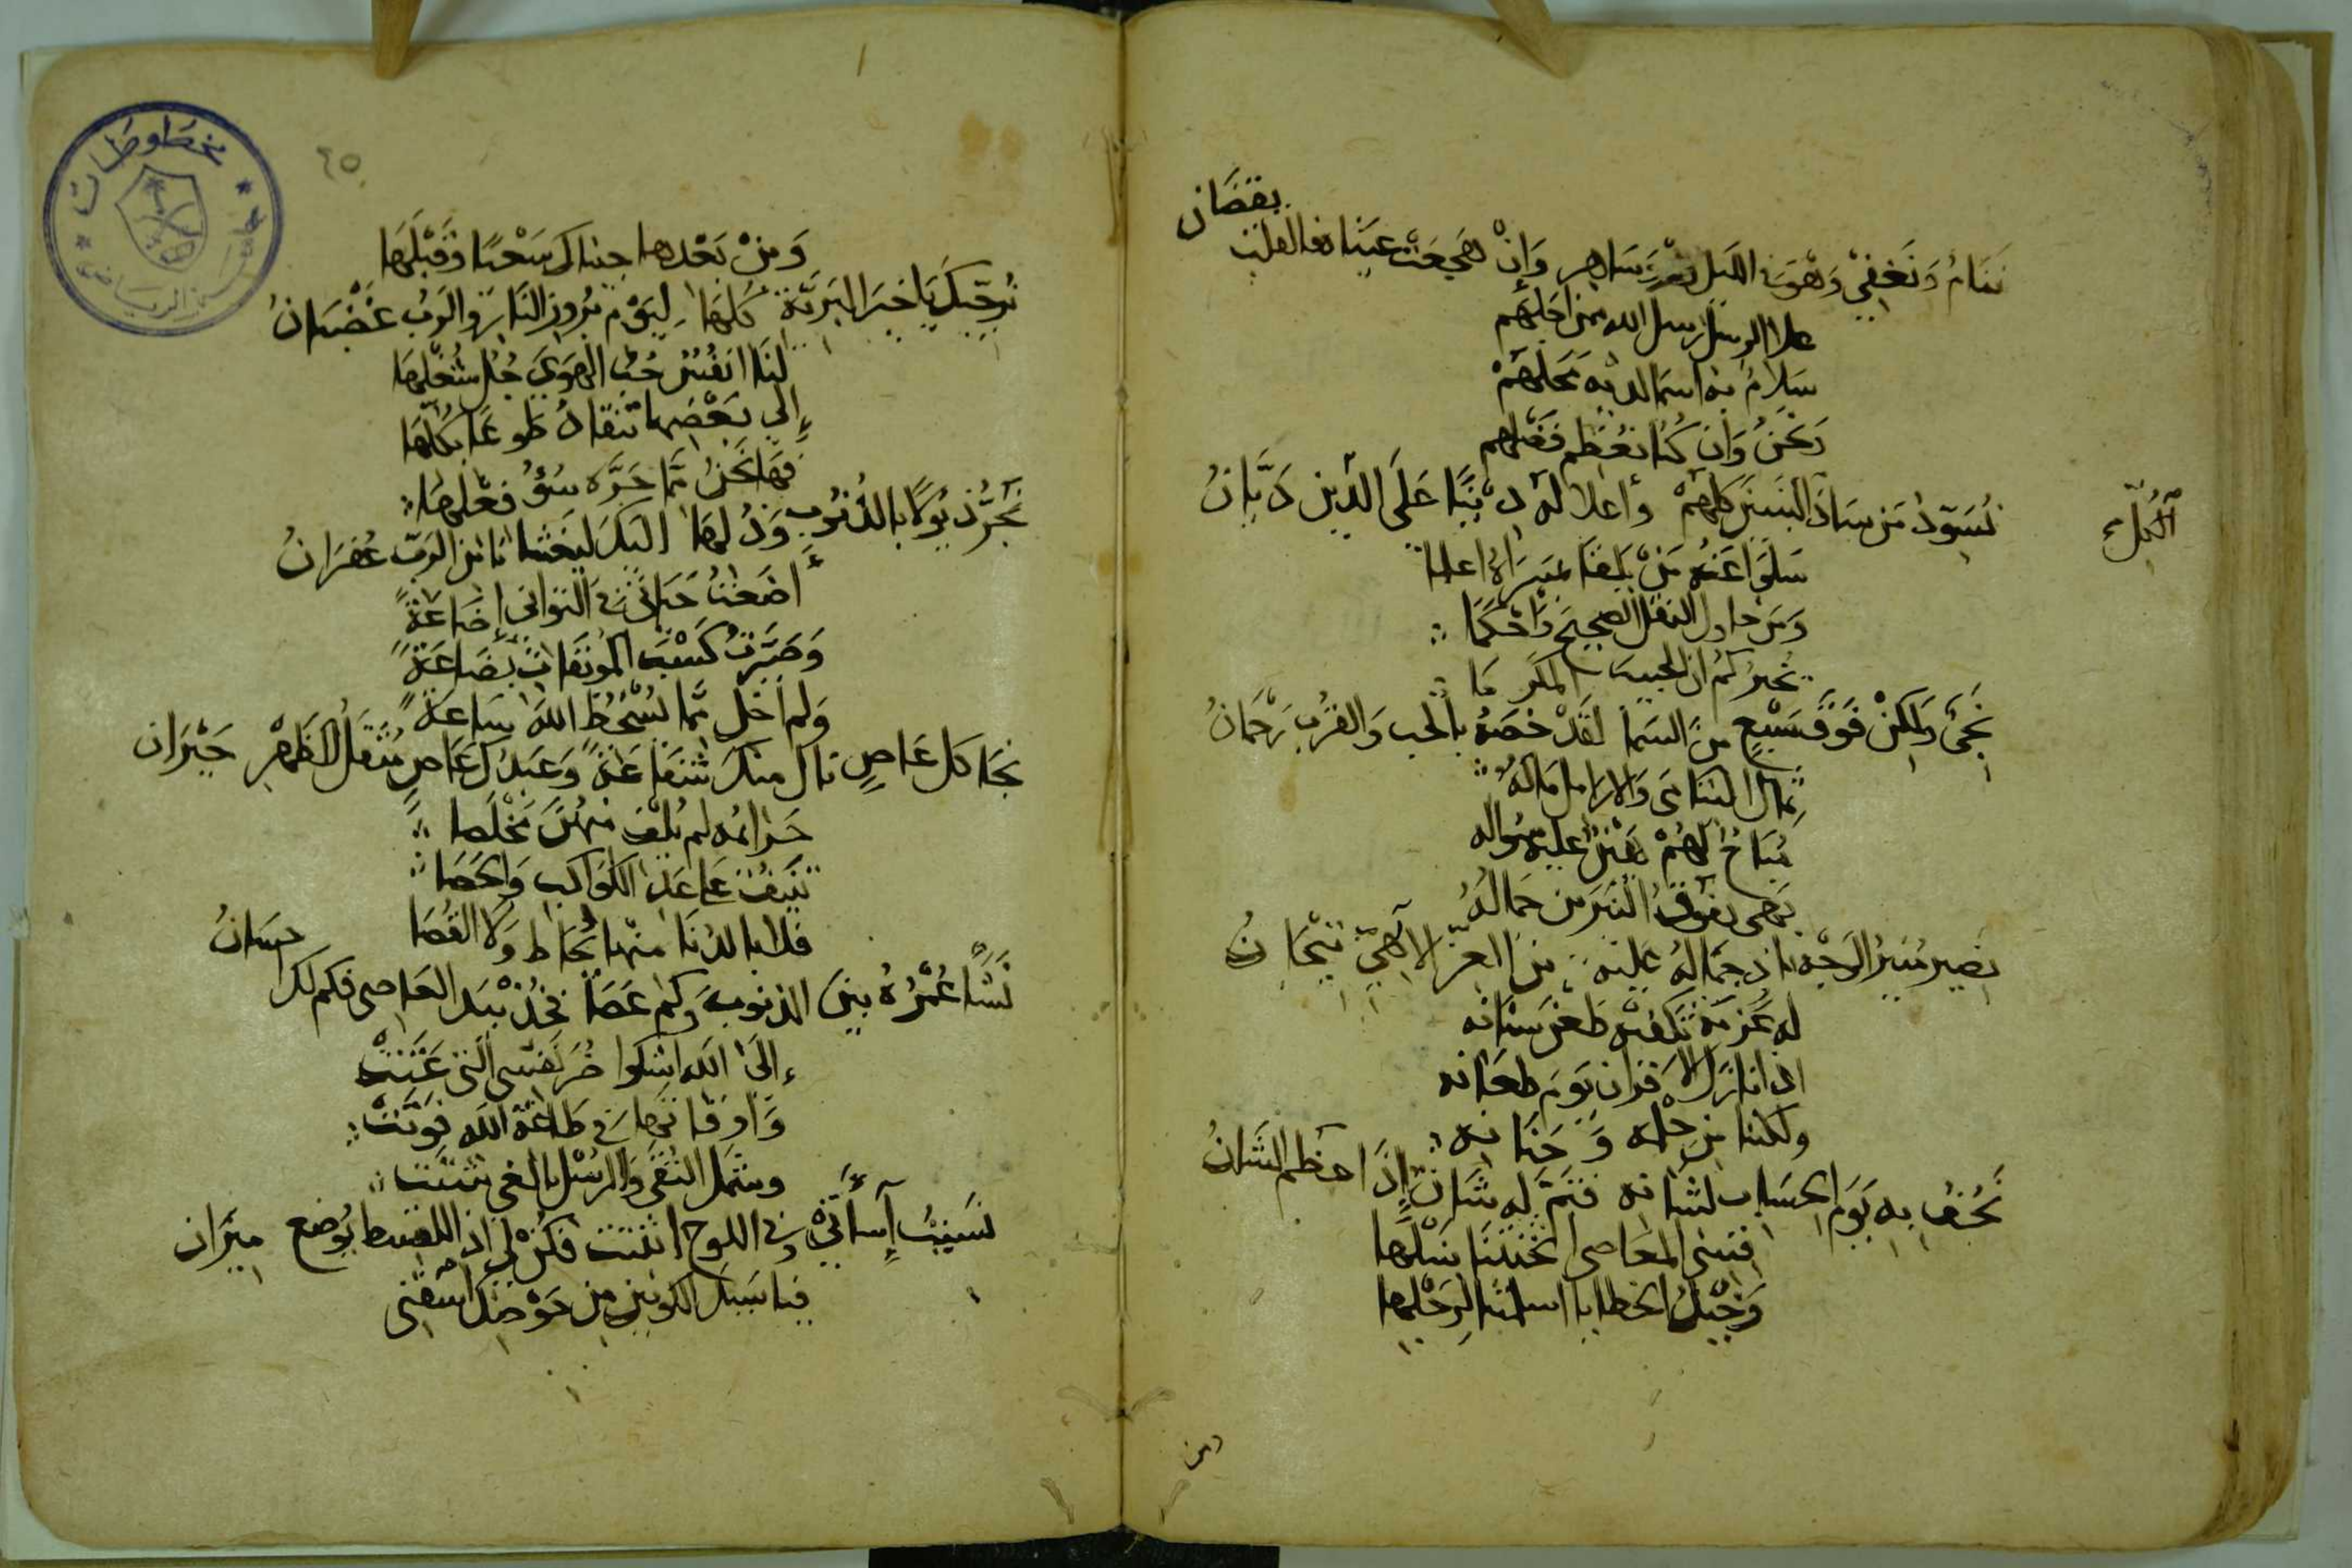 يقضان
ننام ونغفي وهو في الليل ساهر وإن هجعت عيناه فالقلب
علا الرسل رسل الله من اجلهم
سلام به اسما لديه محلهم
ونحن وان كنا نعظم فضلهم
نسود من ساد النبين كلهم وأعلا له دينا على الدين ديان
الكل
سلوا عنه من يلقا بمسراه اعلما
ومن حاول النقل الصحيح واحكما
يخبركم ان الحبيب المكرما
نجي ولكن فوق سبع من السما لقد خصه بالحب والقرب رحمان
ثمال اليتامى والارامل ماله
مباح لهم يهنى عليه سواله
بهي يفوق النيرين جماله
نضير منير الوجه باد جماله عليه من العز الالهي تيجان
له عزمة تكفيه طعن سنانه
اذا نازل الاقران يوم طعانه
ولكننا من حلمه وحنانه
نحف به يوم الحساب لشانه فتم له شان إذا عظم الشان
فتنى المعاصي اثخنتنا بنبلها
وخيل الخطايا اسلمتنا لرجلها
ومن
٤٥
ومن بعدها جيناك سعيا وقبلها
نرجيك يا خير البرية كلها ليوم بروز النار والرب غضبان
لنا انفس حب الهوى جل شغلها
إلي بعضها تنقاد طوعا بكلها
فها نحن مما جره سوء فعلها
نجر ذيولا بالذنوب وذلها اليك ليغشانا من الرب غفران
أضعت حياتي في التواني إضاعة
وصيرت كسب الموبقات بضاعة
ولم اخل مما يسخط الله ساعة
نجا كل عاص نال منك شفاعة وعبدك عاص مثقل الظهر حيران
جرائمه لم يلف منهن مخلصا
تنيف على عد الكواكب والحصا
فلا بالدنا منها يحاط ولا القصا
نشا عمره بين الذنوب وكم عصا فخذ بيد العاصي فكم لك احسان
إلى الله اشكوا ضر نفسي التي عنت
واوقاتها في طاعة الله فوتت
وشمل التقى والرسل بالغي شتت
نسيت إسآتي وفي اللوح اثبتت فكن لي اذ اللقسط يوضع ميزان
فيا سيد الكونين من حوضك اسقني
مخطوطات
جامعة الرياض